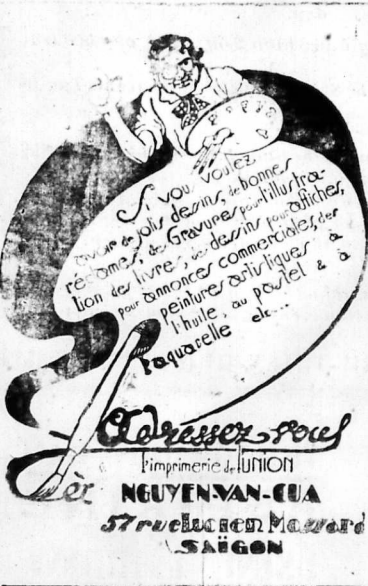 Si vous voulez
avoir de jolis dessins, de bonnes
réclames, des Gravures pour l'illustra-
tion des livres, des dessins pour affiches,
pour annonces commerciales, des
peintures artistiques à
l'huile, au pastel & à
l'aquarelle etc...
Adressez-vous
l'imprimerie de l'UNION
NGUYEN-VAN-CUA
57 rue Lucien Mossard
SAÏGON